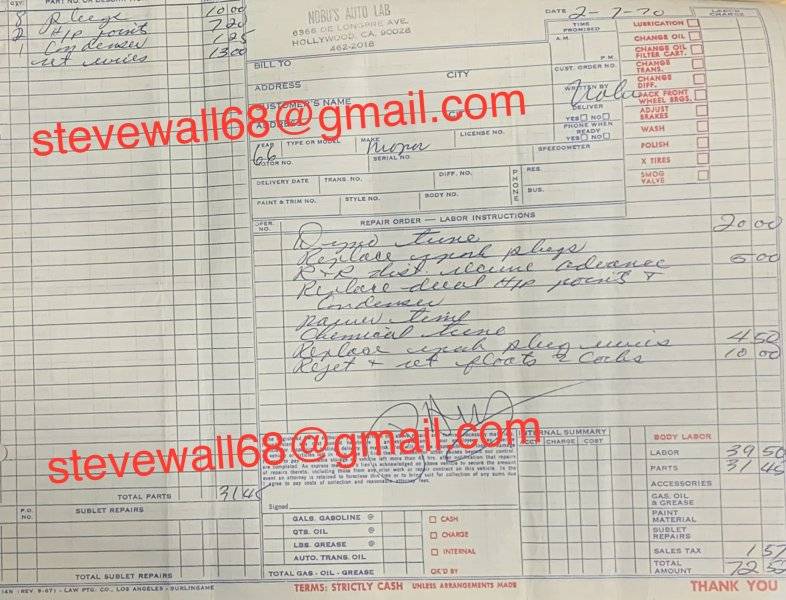 QTY. PART NO. OR DESCRIPTION
8 Plugs 10 00
2 H/p points 7 20
1 Condenser 1 25
set wires 13 00
TOTAL PARTS 31 45
P.O. NO. SUBLET REPAIRS
TOTAL SUBLET REPAIRS
14N (REV 9-67) - LAW PTG. CO., LOS ANGELES - BURLINGAME
NOBU'S AUTO LAB
6366 DE LONGPRE AVE.
HOLLYWOOD, CA. 90028
462-2018
BILL TO
ADDRESS CITY
CUSTOMER'S NAME
ADDRESS
stevewall68@gmail.com
YEAR TYPE OR MODEL MAKE LICENSE NO.
66 Mopar
MOTOR NO. SERIAL NO. SPEEDOMETER
DELIVERY DATE TRANS. NO. DIFF. NO. PHONE RES.
PAINT & TRIM NO. STYLE NO. BODY NO. BUS.
DATE 2-7-70
TIME PROMISED
A.M.
P.M.
CUST. ORDER NO.
WRITTEN BY
Nobu
DELIVER
YES NO
PHONE WHEN READY
YES NO
LABOR CHARGE
LUBRICATION
CHANGE OIL
CHANGE OIL FILTER CART.
CHANGE TRANS.
CHANGE DIFF.
PACK FRONT WHEEL BRGS.
ADJUST BRAKES
WASH
POLISH
X TIRES
SMOG VALVE
OPER. NO. REPAIR ORDER — LABOR INSTRUCTIONS
Dyno tune 20 00
Replace spark plugs
R+R dist. recurve advance 5 00
Replace dual H/p points &
Condenser
Power time
Chemical tune
Replace spark plug wires 4 50
Rejet & set floats 2 Carbs 10 00
stevewall68@gmail.com
Signed
GALS. GASOLINE @
QTS. OIL @
LBS. GREASE @
AUTO. TRANS. OIL
TOTAL GAS - OIL - GREASE
CASH
CHARGE
INTERNAL
OK'D BY
INTERNAL SUMMARY
ACCT. CHARGE COST
BODY LABOR
LABOR 39 50
PARTS 31 45
ACCESSORIES
GAS, OIL & GREASE
PAINT MATERIAL
SUBLET REPAIRS
SALES TAX 1 57
TOTAL AMOUNT 72 52
TERMS: STRICTLY CASH UNLESS ARRANGEMENTS MADE
THANK YOU